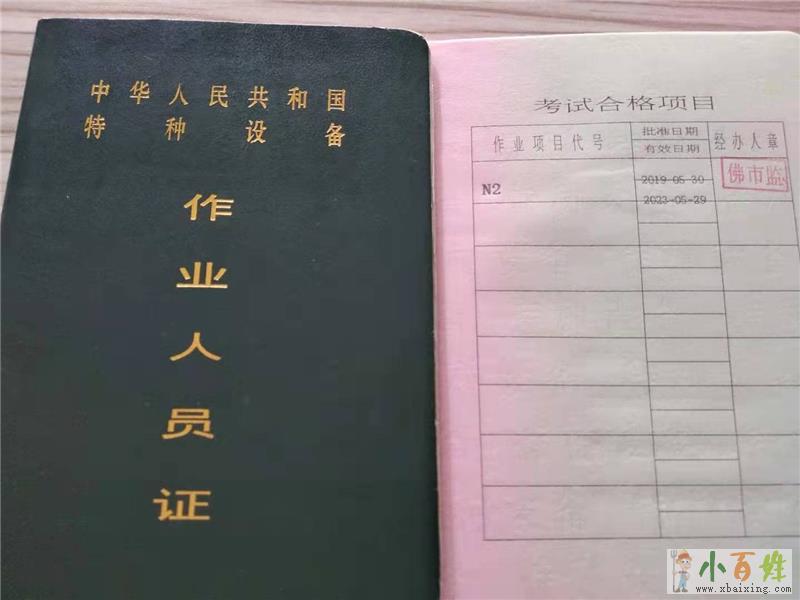 中华人民共和国
特种设备
作
业
人
员
证
考试合格项目
作业项目代号
批准日期
有效日期
经办人章
N2
2019-05-30
2023-05-29
佛市监
小百姓
www.xbaixing.com